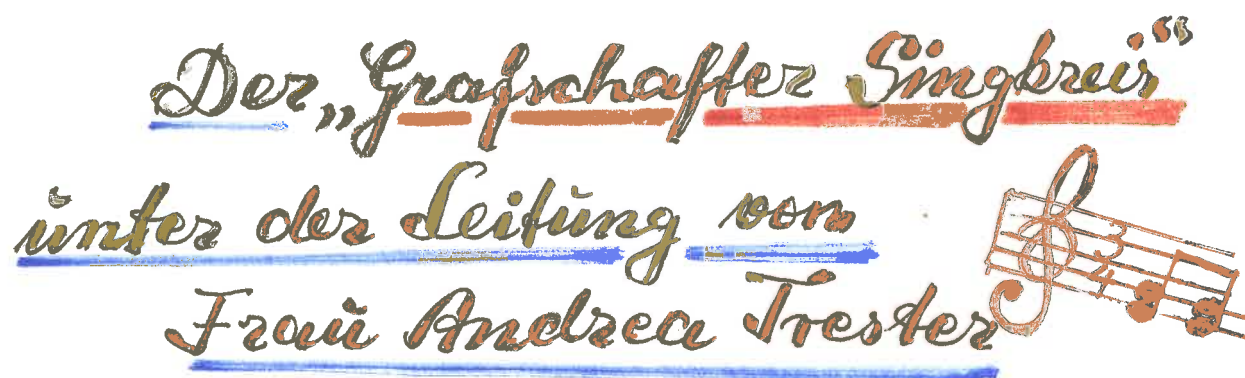 Der „Grafschafter Singkreis“
unter der Leitung von
Frau Andrea Trester